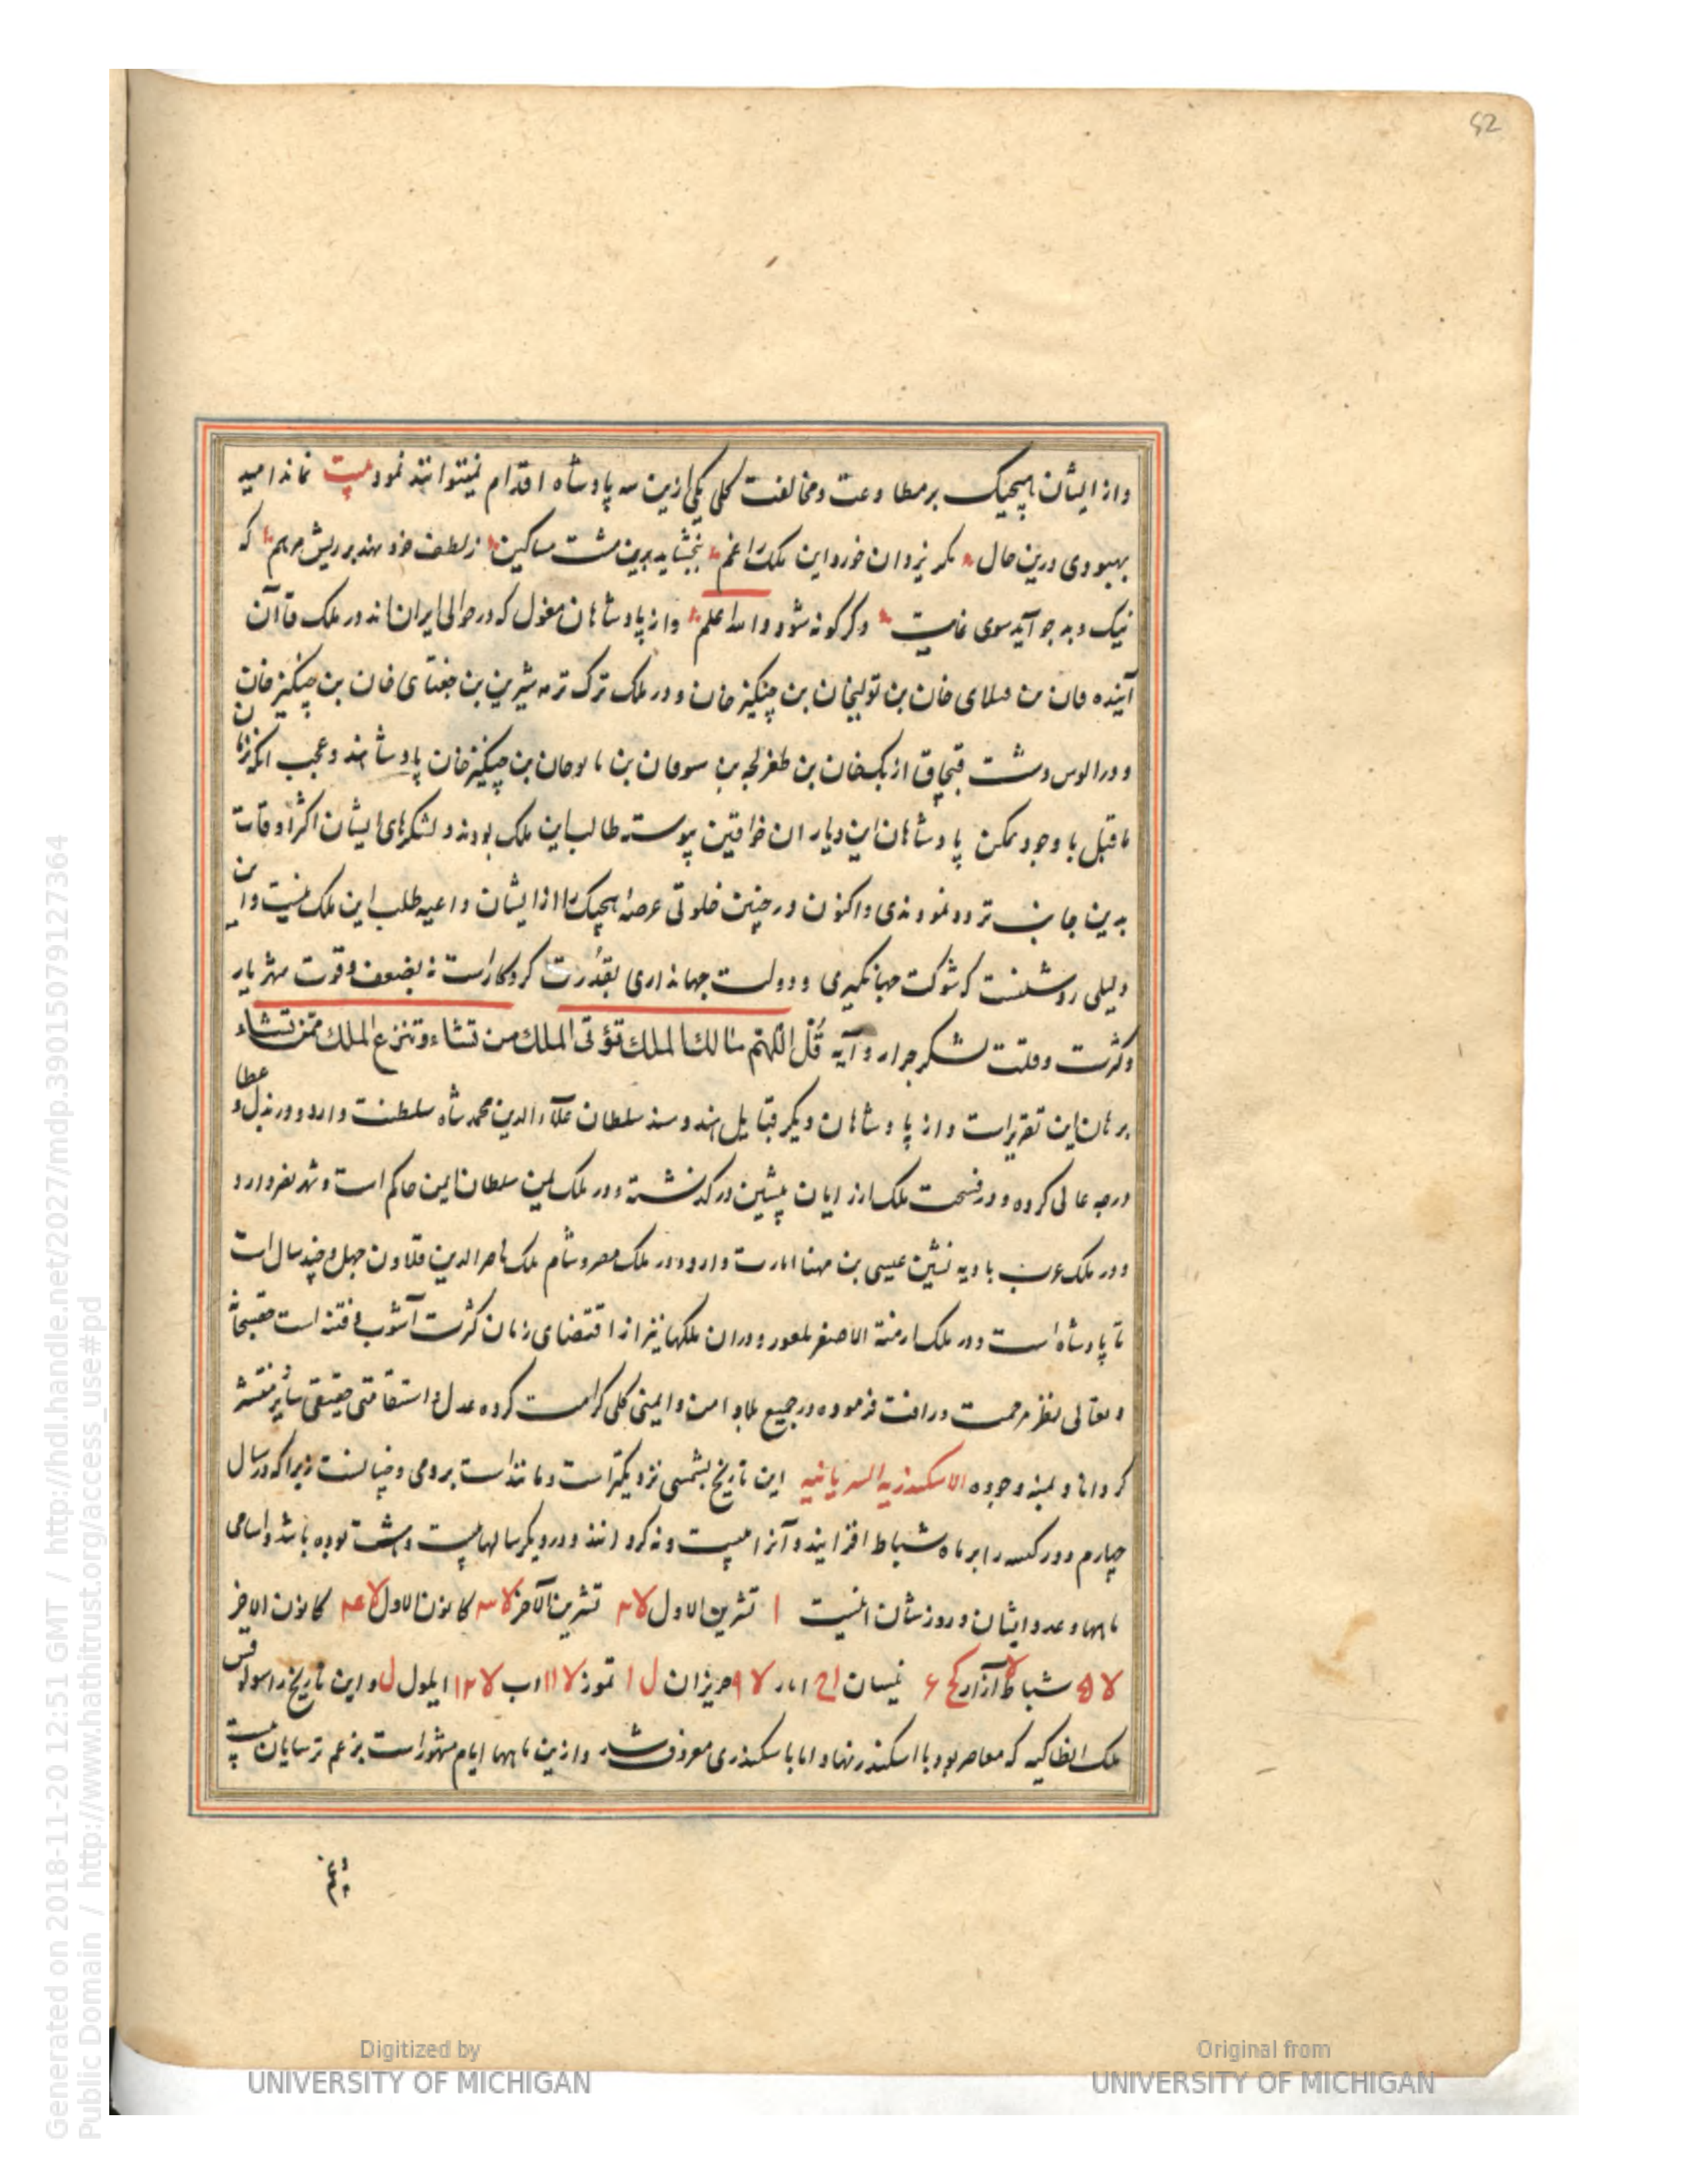 52
واز ایشان هیچیک بر مطاوعت ومخالفت کلی یکی ازین سه پادشاه اقدام نمیتوانند نمود بیت نماند امید
بهبودی درین حال مگر یزدان خورد این ملک را غم ببخشاید برین مشت مساکین زلطف خود نهد بر ریش مرهم که
نیک وبد چو آید سوی غایت دگرگونه شود والله اعلم واز پادشاهان مغول که در حوالی ایران اند در ملک قاآن
خان بن تولیخان بن چنگیز خان ودر ملک ترک ترمه شیرین بن جغتای خان بن چنگیز خان
ودر الوس دشت قبچاق ازبکخان بن طغرلجه بن بن بن چنگیز خان پادشاهند وعجب آنکه زمان
ماقبل با وجود تمکن پادشاهان این دیار ان خواقین پیوسته طالب این ملک بودند ولشکرهای ایشان اکثر اوقات
بدین جانب تردد نمودندی واکنون در چنین خلوتی عرصه هیچیک را از ایشان داعیه طلب این ملک نیست واین
دلیلی روشنست که شوکت جهانگیری ودولت جهانداری بقدرت کردکار است نه بضعف وقوت شهریار
وکثرت وقلت لشکر جرار وآیه قُل اللّهم مالك الملك تؤتی الملك من تشاء وتنزع الملك ممّن تشاء
برهان این تقریر است واز پادشاهان دیگر قبایل هند وسند سلطان علاء الدین محمد شاه سلطنت دارد ودر بذل وعطا
درجه عالی کرده ودر فسحت ملک از رایان پیشین درگذشته ودر ملک یمن سلطان یمن حاکم است وشهر تعز دارد
ودر ملک عرب بادیه نشین عیسی بن مهنا امارت دارد ودر ملک مصر وشام ملک ناصر الدین قلاون چهل وچند سال است
تا پادشاه است ودر ملک ارمنة الاصغر ودران ملکها نیز از اقتضای زمان کثرت آشوب وفتنه است حقسبحانه
وتعالی نظر مرحمت ورافت فرموده در جمیع بلاد امن وایمنی کلی کرامت کرده عدل واستقامتی حقیقی سایر منتشر
گرداناد وبمنه وجوده الاسکندریه السریانیه این تاریخ بشمسی نزدیکتر است ومانند است برومی وچنانست زیرا که در سال
چهارم دور کسه را بر ماه شباط افزایند وآنرا بیست ونه گردانند ودر دیگر سالها بیست وهشت بوده باشد واسامی
ماهها وعدد ایشان وروزشان اینست ا تشرین الاول لا ۲ تشرین الآخر لا ۳ کانون الاول لا ۴ کانون الاخر
لا ۵ شباط آزار کح ۶ نیسان ایار لا ۹ حریزان ل ا تموز لا ۱۱ اب لا ۱۲ ایلول ل واین تاریخ را سولوقس
ملک انطاکیه که معاصر بود با اسکندر نهاد اما با سکندری معروف شد وازین ماهها ایام مشهور است بزعم ترسایان بیست